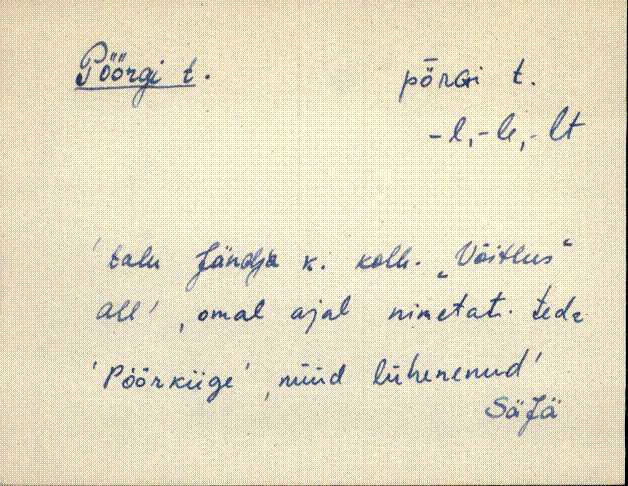 Pöörgi t. pȭrGi t.
-l, -le, -lt
'talu Jändja k. kolh. „Võitlus"
all', omal ajal nimetati teda
'Pöörkiige', nüüd lühenenud'
SäJä